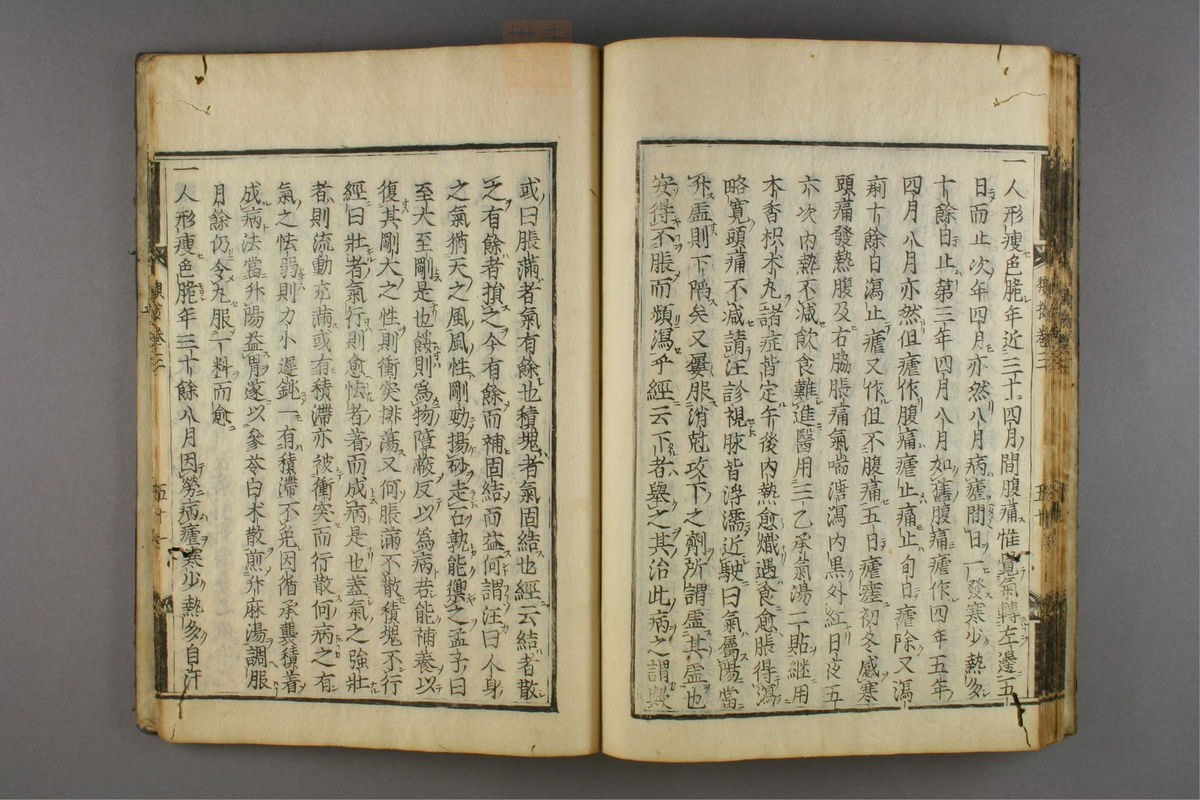 一人形瘦色脆年近三十四月間腹痛惟覺氣轉左邊五
日而止次年四月亦然八月病瘧間日一發寒少熱多
十餘日止第三年四月八月如舊腹痛瘧作四年五年
四月八月亦然但瘧作腹痛瘧止痛止旬日瘧除又瀉
痢十餘日瀉止瘧又作但不腹痛五日瘧瘥初冬感寒
頭痛發熱腹及右脇脹痛氣喘溏瀉內黑外紅日夜五
六次內熱不減飲食難進醫用三乙承氣湯二貼継用
木香枳术丸諸症皆定午後內熱愈熾遇食愈脹得瀉
略寬頭痛不減請汪診視脉皆浮濡近駛曰氣屬陽當
升虛則下陷矣又屢服消尅攻下之劑所謂虛其虛也
安得不脹而頻瀉乎經云下者舉之其治此病之謂歟
或曰脹滿者氣有餘也積塊者氣固結也經云結者散
之有餘者損之今有餘而補固結而益何謂汪曰人身
之氣猶天之風風性剛勁揚砂走石孰能禦之孟子曰
至大至剛是也餒則為物障蔽反以為病若能補養以
復其剛大之性則衝突排蕩又何脹滿不散積塊不行
經曰壯者氣行則愈怯者著而成病是也蓋氣之強壯
者則流動充滿或有積滯亦被衝突而行散何病之有
氣之怯弱則力小遲鈍一有積滯不免因循承襲積著
成病法當升陽益胃遂以參苓白术散煎升麻湯調服
月餘仍令丸服一料而愈
一人形瘦色脆年三十餘八月因勞病瘧寒少熱多自汗